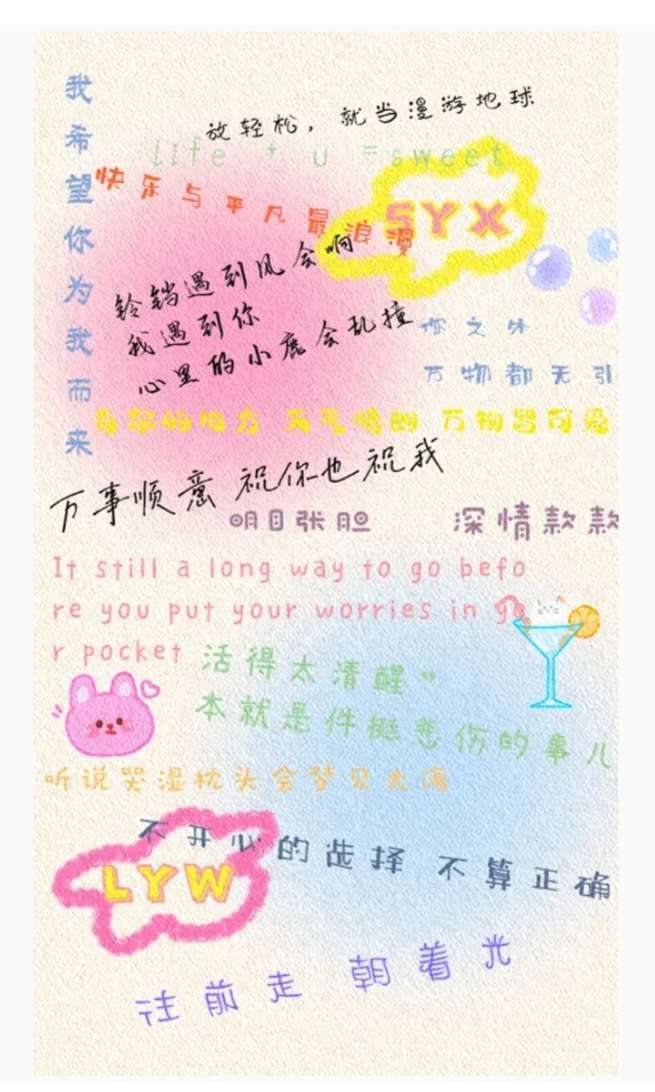 我希望你为我而来
放轻松，就当漫游地球
life + u = sweet
快乐与平凡最浪漫
SYX
铃铛遇到风会响
我遇到你
心里的小鹿会乱撞
你之外
万物都无引
有你的地方 天气晴朗 万物皆可爱
万事顺意 祝你也祝我
明目张胆 深情款款
It still a long way to go befo
re you put your worries in yo
r pocket
活得太清醒
本就是件挺悲伤的事儿
听说哭湿枕头会梦见大海
不开心的选择 不算正确
LYW
往前走 朝着光